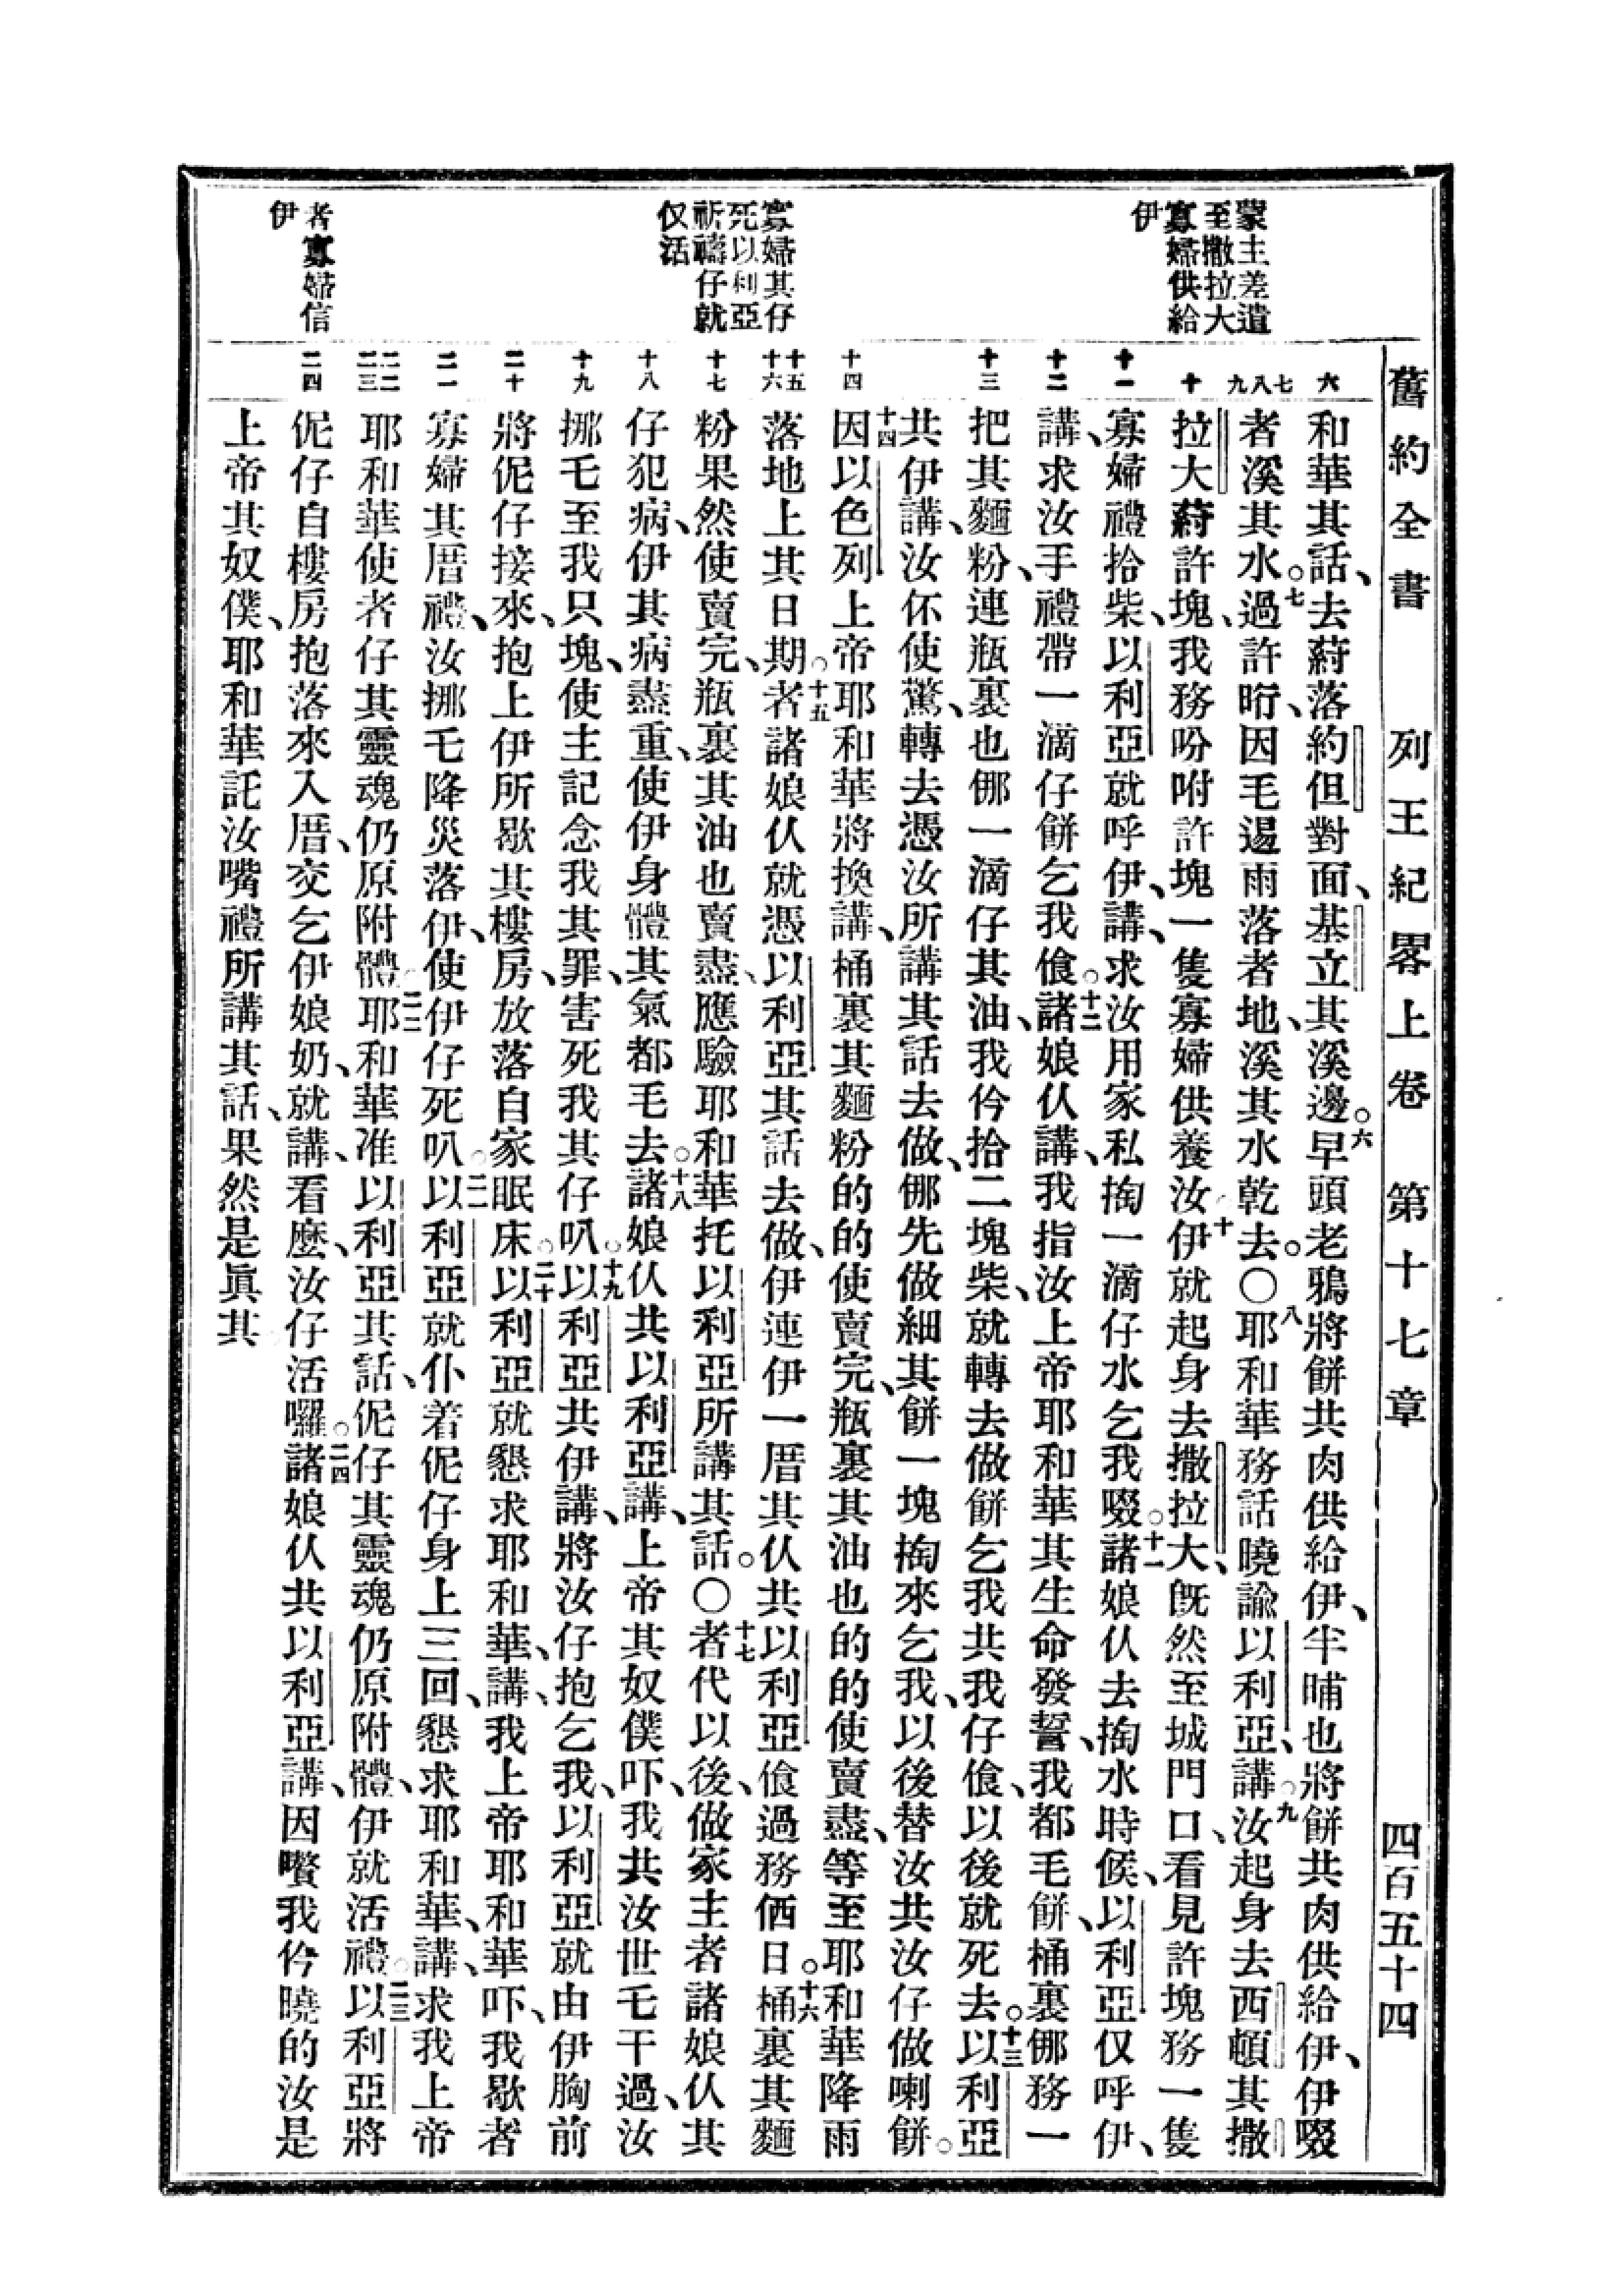 舊約全書 列王紀畧上卷 第十七章 四百五十四
蒙主差遣
至撒拉大
寡婦供給
伊
寡婦其仔
死以利亞
祈禱仔就
仅活
者寡婦信
伊
六
七
八
九
十
十一
十二
十三
十四
十五
十六
十七
十八
十九
二十
二一
二二
二三
二四
和華其話、去蔚落約但對面、基立其溪邊。六早頭老鴉將餅共肉供給伊、半晡也將餅共肉供給伊、伊啜
者溪其水。七過許昕、因毛逿雨落者地、溪其水乾去。〇八耶和華務話曉諭以利亞、講、九汝起身去西頓其撒
拉大蔚許塊、我務吩咐許塊一隻寡婦供養汝。十伊就起身去撒拉大、既然至城門口、看見許塊務一隻
寡婦禮拾柴、以利亞就呼伊、講、求汝用家私掏一滴仔水乞我啜。十一諸娘仈去掏水時候、以利亞仅呼伊、
講、求汝手禮帶一滴仔餅乞我飡。十二諸娘仈講、我指汝上帝耶和華其生命發誓、我都毛餅、桶裏倻務一
把其麵粉、連瓶裏也倻一滴仔其油、我仱拾二塊柴、就轉去做餅乞我共我仔飡、以後就死去。十三以利亞
共伊講、汝伓使驚、轉去憑汝所講其話去做、倻先做細其餅一塊掏來乞我、以後替汝共汝仔做喇餅。
十四因以色列上帝耶和華將換講、桶裏其麵粉的的使賣完、瓶裏其油也的的使賣盡、等至耶和華降雨
落地上其日期。十五者諸娘仈就憑以利亞其話去做、伊連伊一厝其仈共以利亞飡過務価日。十六桶裏其麵
粉果然使賣完、瓶裏其油也賣盡、應驗耶和華托以利亞所講其話。〇十七者代以後、做家主者諸娘仈其
仔犯病、伊其病盡重、使伊身體其氣都毛去。十八諸娘仈共以利亞講、上帝其奴僕吓、我共汝世毛干過、汝
挪毛至我只塊、使主記念我其罪、害死我其仔叭。十九以利亞共伊講、將汝仔抱乞我、以利亞就由伊胸前
將伲仔接來、抱上伊所歇其樓房、放落自家眠床。二十以利亞就懇求耶和華、講、我上帝耶和華吓、我歇者
寡婦其厝禮、汝挪毛降災落伊、使伊仔死叭。二一以利亞就仆着伲仔身上三回、懇求耶和華、講、求我上帝
耶和華使者仔其靈魂仍原附體。二二耶和華准以利亞其話、伲仔其靈魂仍原附體、伊就活禮。二三以利亞將
伲仔自樓房抱落來入厝、交乞伊娘奶、就講、看麼、汝仔活囉。二四諸娘仈共以利亞講、因嚽我仱曉的汝是
上帝其奴僕、耶和華託汝嘴禮所講其話、果然是眞其